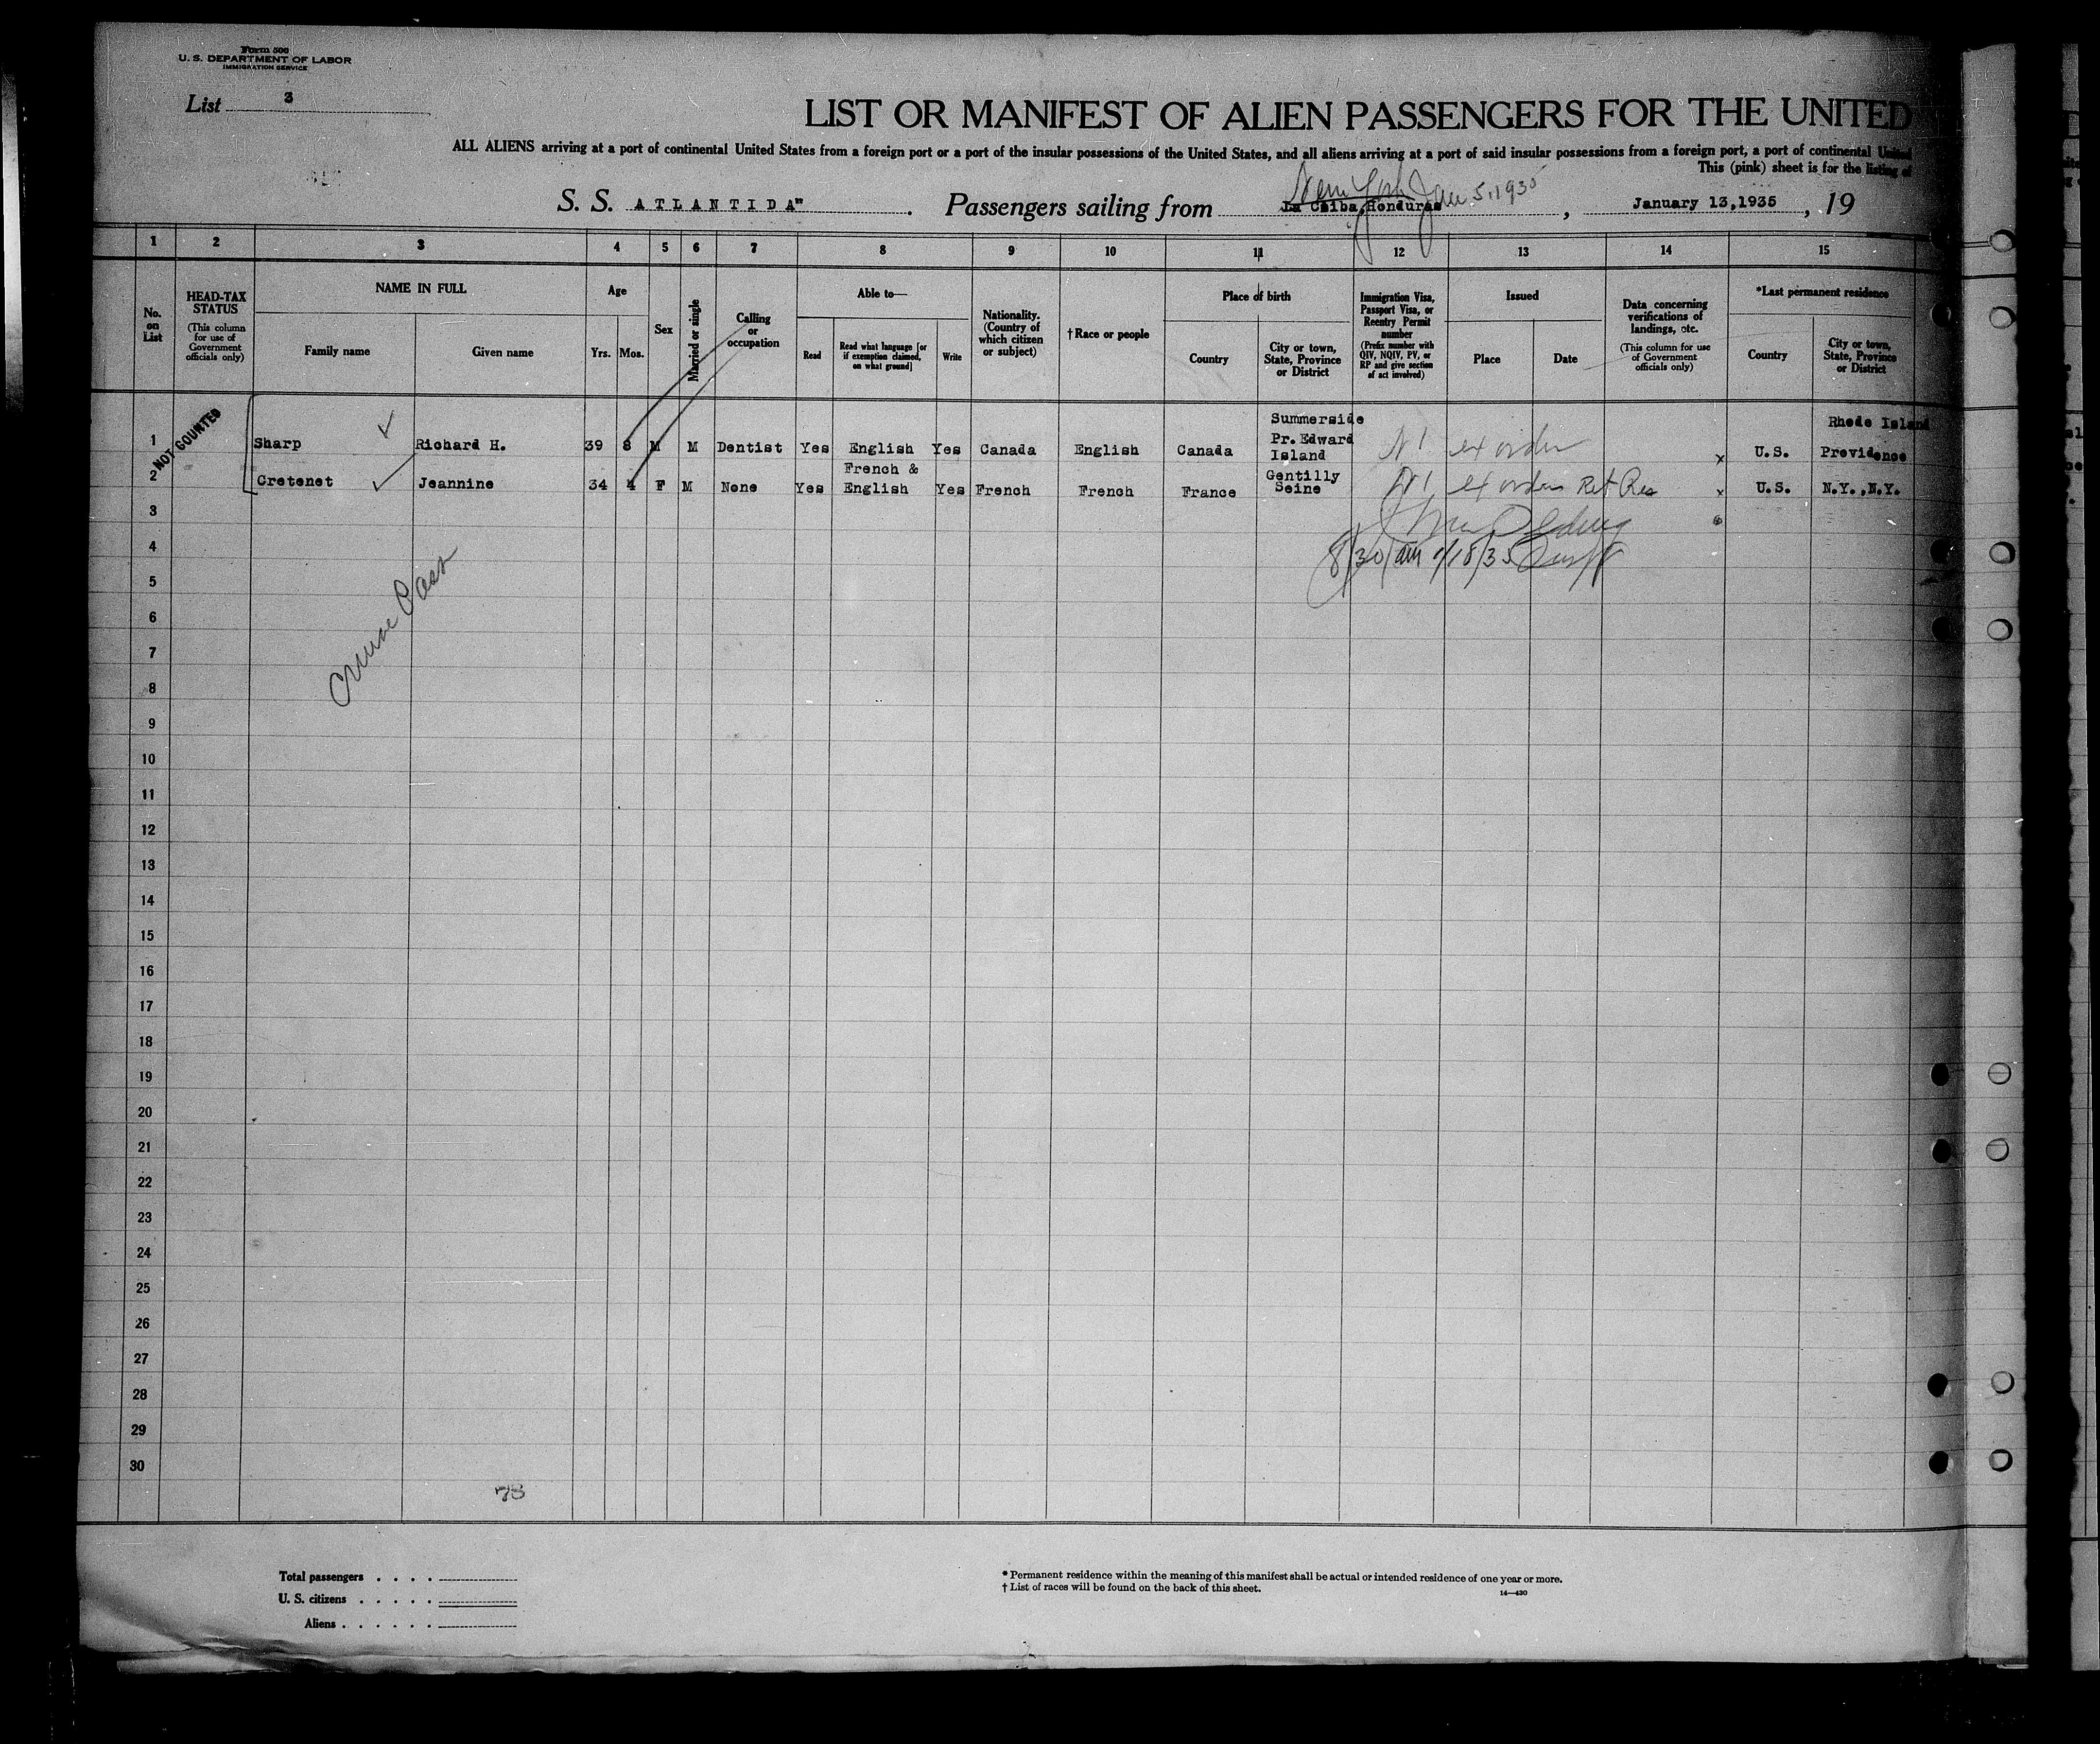 Form 500
U. S. DEPARTMENT OF LABOR
IMMIGRATION SERVICE
List 3
LIST OR MANIFEST OF ALIEN PASSENGERS FOR THE UNITED
ALL ALIENS arriving at a port of continental United States from a foreign port or a port of the insular possessions of the United States, and all aliens arriving at a port of said insular possessions from a foreign port, a port of continental United
This (pink) sheet is for the listing of
New York Jan 5, 1935
S. S. ATLANTIDA" . Passengers sailing from La Ceiba, Honduras , January 13,1935 , 19
1 2 3 4 5 6 7 8 9 10 11 12 13 14 15
No. on List
HEAD-TAX STATUS
(This column for use of Government officials only)
NAME IN FULL
Family name
Given name
Age
Yrs. Mos.
Sex
Married or single
Calling or occupation
Able to—
Read
Read what language [or if exemption claimed, on what ground]
Write
Nationality. (Country of which citizen or subject)
†Race or people
Place of birth
Country
City or town, State, Province or District
Immigration Visa, Passport Visa, or Reentry Permit number
(Prefix number with QIV, NQIV, PV, or RP and give section of act involved)
Issued
Place
Date
Data concerning verifications of landings, etc.
(This column for use of Government officials only)
*Last permanent residence
Country
City or town, State, Province or District
NOT COUNTED
1 Sharp Richard H. 39 8 M M Dentist Yes English Yes Canada English Canada Summerside Pr. Edward Island ex order x U.S. Rhode Island Providence
2 Cretenet Jeannine 34 4 F M None Yes French & English Yes French French France Gentilly Seine ex order Ret Res x U.S. N.Y.,N.Y.
3
4 8/30 am 1/18/35
5
6
7
8
9
10
11
12
13
14
15
16
17
18
19
20
21
22
23
24
25
26
27
28
29
30
Cruise Pass
78
Total passengers . . . .
U. S. citizens . . . . .
Aliens . . . . . .
* Permanent residence within the meaning of this manifest shall be actual or intended residence of one year or more.
† List of races will be found on the back of this sheet.
14—430